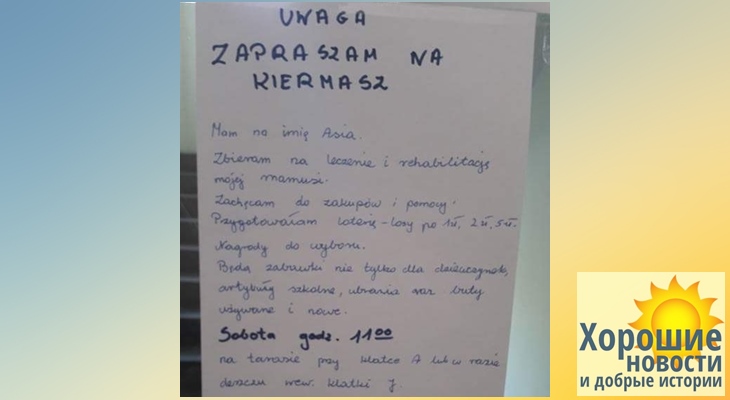 UWAGA
ZAPRASZAM NA
KIERMASZ
Mam na imię Asia.
Zbieram na leczenie i rehabilitację
mojej mamusi.
Zachęcam do zakupów i pomocy.
Przygotowałam loterię - losy po 1zł, 2zł, 5zł.
Nagrody do wyboru.
Będą zabawki nie tylko dla dziewczynek,
artykuły szkolne, ubrania oraz buty
używane i nowe.
Sobota godz. 11 00
na tarasie przy klatce A lub w razie
deszczu wew. klatki J.
Хорошие
новости
и добрые истории